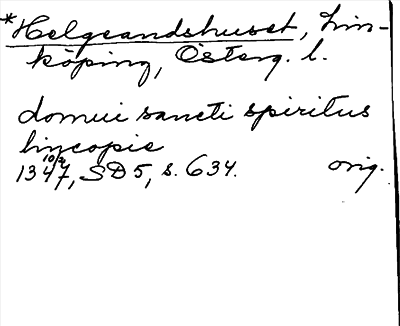 *Helgeandshuset, Lin-
köping, Österg. l.
domui sancti spiritus
lincopie
10/2
1347, SD5, s. 634. orig.